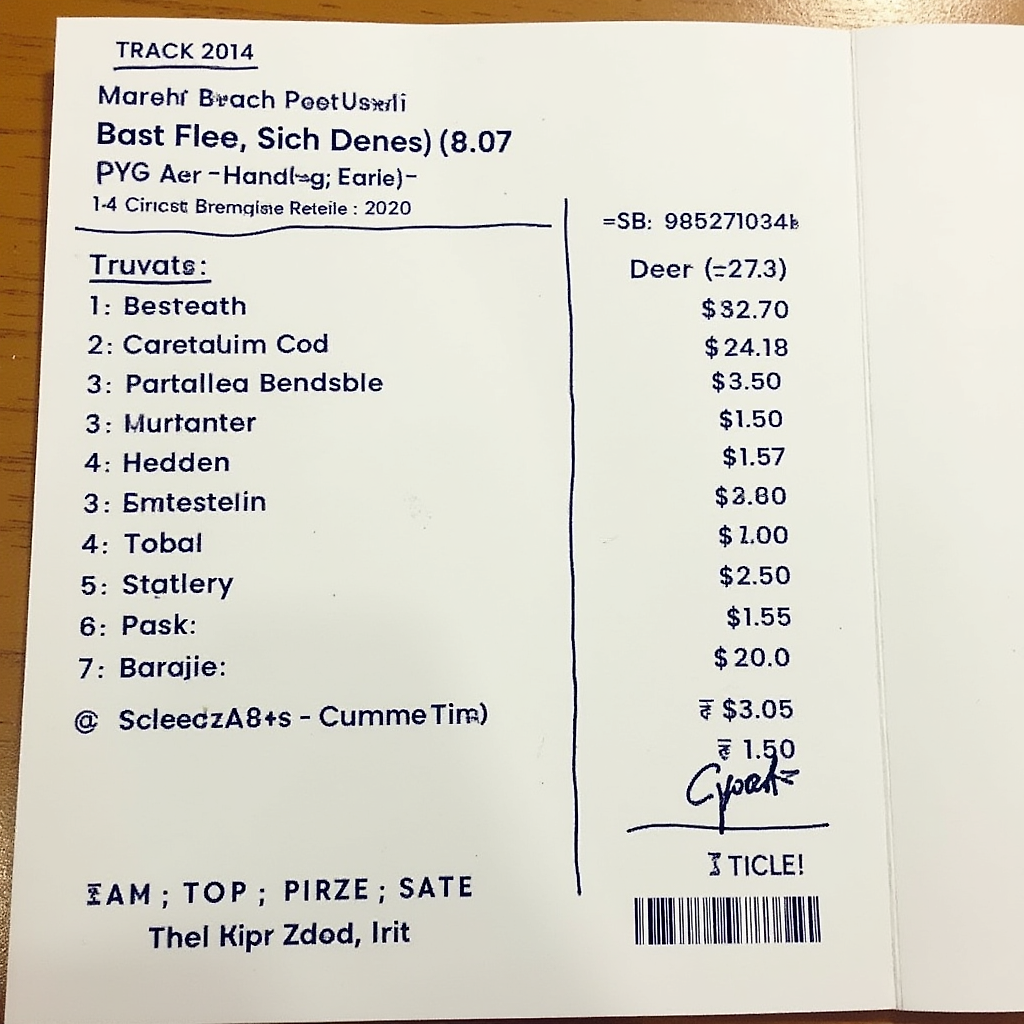 TRACK 2014
Beach
Bast Flee, Sich Denes) (8.07
PYG Aer
1-4 Bremgise Reteile : 2020
=SB: 985271034
Truvats:
Deer (=27.3)
1: Besteath
$32.70
2: CaretaUim Cod
$24.18
3: Partallea Bendsble
$3.50
3: Murtanter
$1.50
4: Hedden
$1.57
3: Emtestelin
4: Tobal
$1.00
5: Statlery
$2.50
6: Pask:
$1.55
7: Barajie:
$20.0
@ - Cumme
$3.05
1.50
TICLE!
TOP ; PIRZE ; SATE
Thel Kipr Zdod, Irit